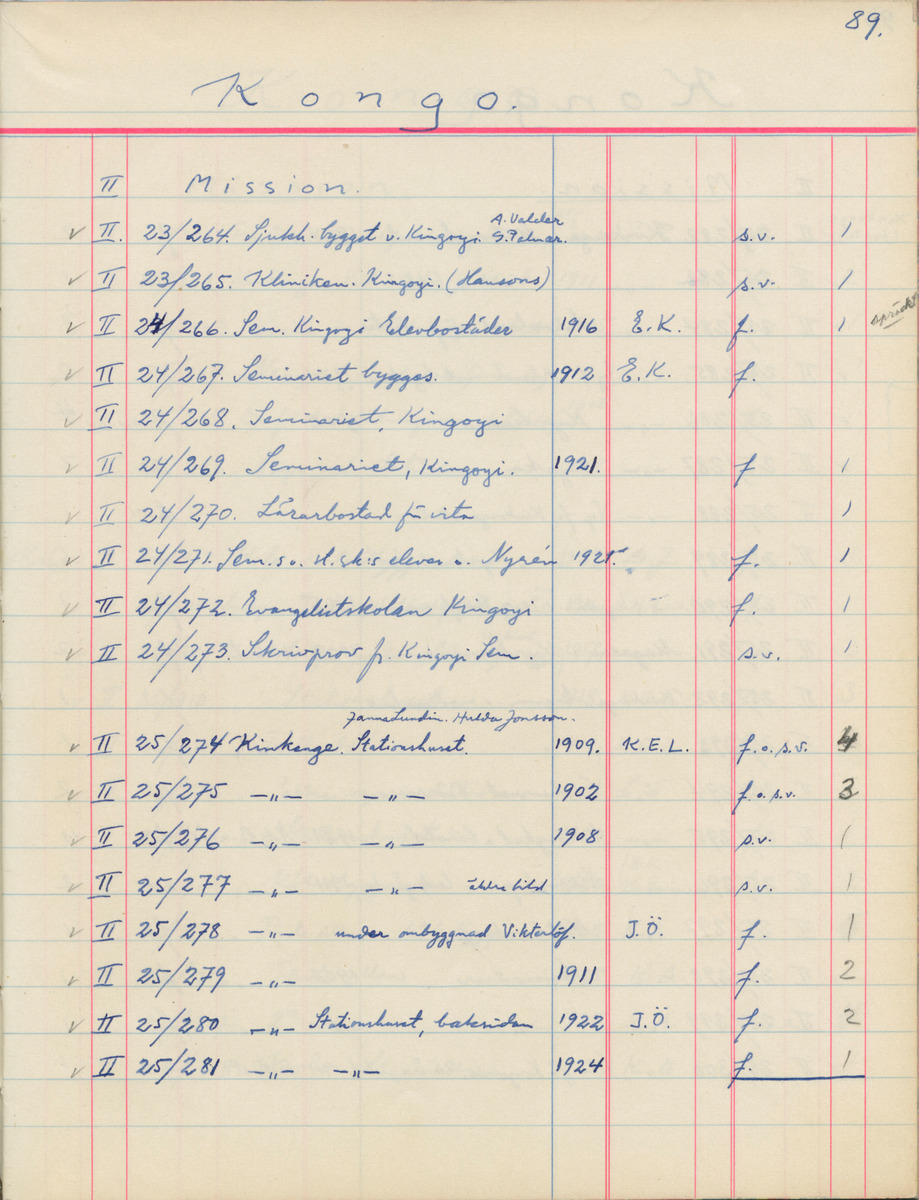 89.
Kongo.
II Mission.
A. Valder
✓ II. 23/264. Sjukh. bygget v. Kingoyi. S. Palmær. s.v. 1
✓ II 23/265. Kliniken. Kingoyi. (Hansons) s.v. 1
✓ II 24/266. Sem. Kingoyi Elevbostäder 1916 E.K. f. 1 spräckt
✓ II 24/267. Seminariet bygges. 1912 E.K. f.
✓ II 24/268. Seminariet, Kingoyi
✓ II 24/269. Seminariet, Kingoyi. 1921. f 1
✓ II 24/270. Lärarbostad för vita 1
✓ II 24/271. Sem.s o. H.sk:s elever o. Nyrén 1921. f. 1
✓ II 24/272. Evangelistskolan Kingoyi f. 1
✓ II 24/273. Skrivprov fr. Kingoyi Sem. s.v. 1
Janna Lundin. Hulda Jonsson.
✓ II 25/274 Kinkenge. Stationshuset. 1909. K.E.L. f.o.s.v. 4
✓ II 25/275 —„— —„— 1902 f.o.s.v. 3
✓ II 25/276 —„— —„— 1908 s.v. 1
✓ II 25/277 —„— —„— äldre bild s.v. 1
✓ II 25/278 —„— under ombyggnad Vikterlöf. J.Ö. f. 1
✓ II 25/279 —„— 1911 f. 2
✓ II 25/280 —„— Stationshuset, baksidan 1922 J.Ö. f. 2
✓ II 25/281 —„— —„— 1924 f. 1